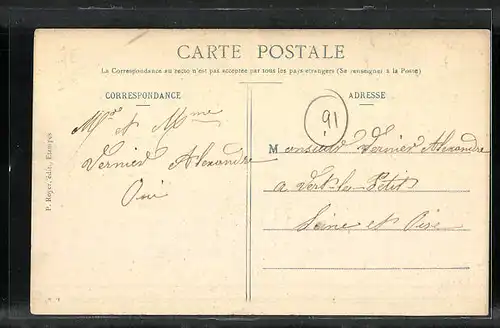 CARTE POSTALE
La Correspondance au recto n'est pas acceptée par tous les pays étrangers (Se renseigner à la Poste)
CORRESPONDANCE
ADRESSE
91
Mr et Mme
Vernier Alexandre
Monsieur Vernier Alexandre
a Vert-le-Petit
Seine et Oise
P. Royer, édit., Etampes